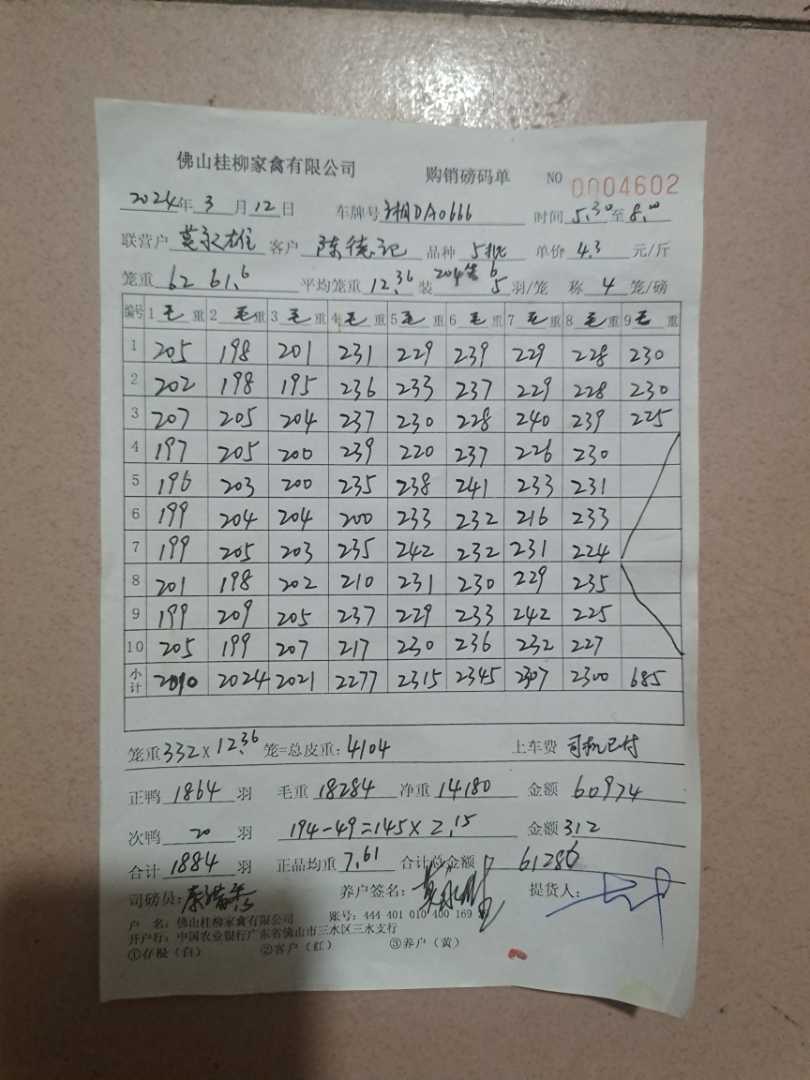 佛山桂柳家禽有限公司 购销磅码单 NO 0004602
2024年 3 月 12 日 车牌号 湘DA0666 时间 5.30 至 8.00
联营户 莫永雄 客户 陈德记 品种 5批 单价 4.3 元/斤
笼重 62 61.6 平均笼重 12.36 装 204笼6 5 羽/笼 称 4 笼/磅
编号 1 毛 重 2 毛 重 3 毛 重 4 毛 重 5 毛 重 6 毛 重 7 毛 重 8 毛 重 9 毛 重
1 205 198 201 231 229 239 229 228 230
2 202 198 195 236 233 237 229 228 230
3 207 205 204 237 230 228 240 239 225
4 197 205 200 239 220 237 226 230
5 196 203 200 235 238 241 233 231
6 199 204 204 200 233 232 216 233
7 199 205 203 235 242 232 231 224
8 201 198 202 210 231 230 229 235
9 199 209 205 237 229 233 242 225
10 205 199 207 217 230 236 232 227
小计 2010 2024 2021 2277 2315 2345 2307 2300 685
笼重 332 x 12.36 笼=总皮重: 4104 上车费 司机已付
正鸭 1864 羽 毛重 18284 净重 14180 金额 60974
次鸭 20 羽 194-49=145x2.15 金额 312
合计 1884 羽 正品均重 7.61 合计总金额 61286
司磅员: 养户签名: 莫永雄 提货人:
户 名: 佛山桂柳家禽有限公司 账号: 444 401 010 400 169
开户行: 中国农业银行广东省佛山市三水区三水支行
①存根(白) ②客户(红) ③养户(黄)